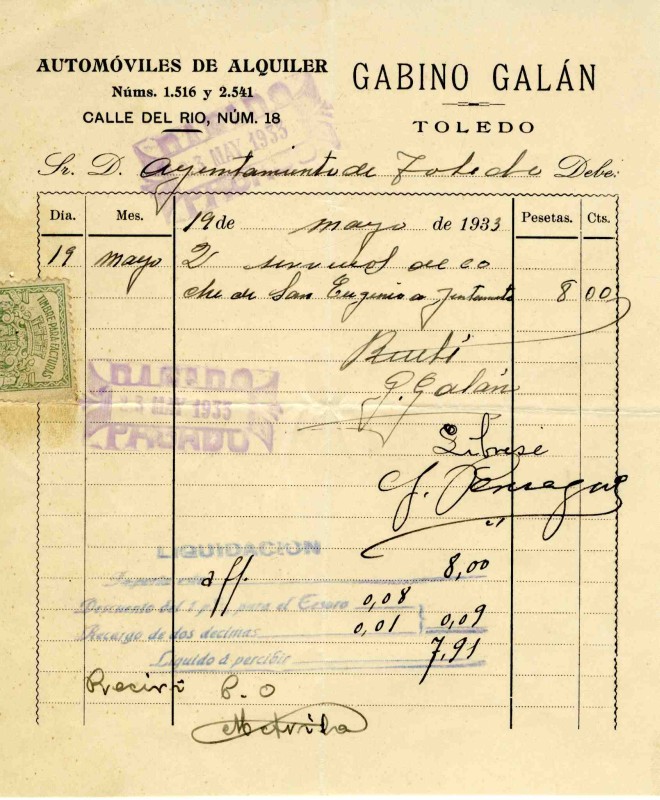 AUTOMÓVILES DE ALQUILER
Núms. 1.516 y 2.541
CALLE DEL RIO, NÚM. 18
GABINO GALÁN
TOLEDO
PAGADO
MAY 1933
PAGADO
Sr. D. Ayuntamiento de Toledo Debe:
Día. Mes. 19 de mayo de 1933 Pesetas. Cts.
19 mayo 2 servicios de co
che de San Eugenio a 8 00
TIMBRE PARA FACTURAS
Recibí
G. Galán
PAGADO
MAY 1933
PAGADO
Líbrese
LIQUIDACION
Importe 8,00
Descuento del 1 p para el Tesoro 0,08
Recargo de dos decimas 0,01 0,09
Liquido á percibir 7,91
Recivi P. O